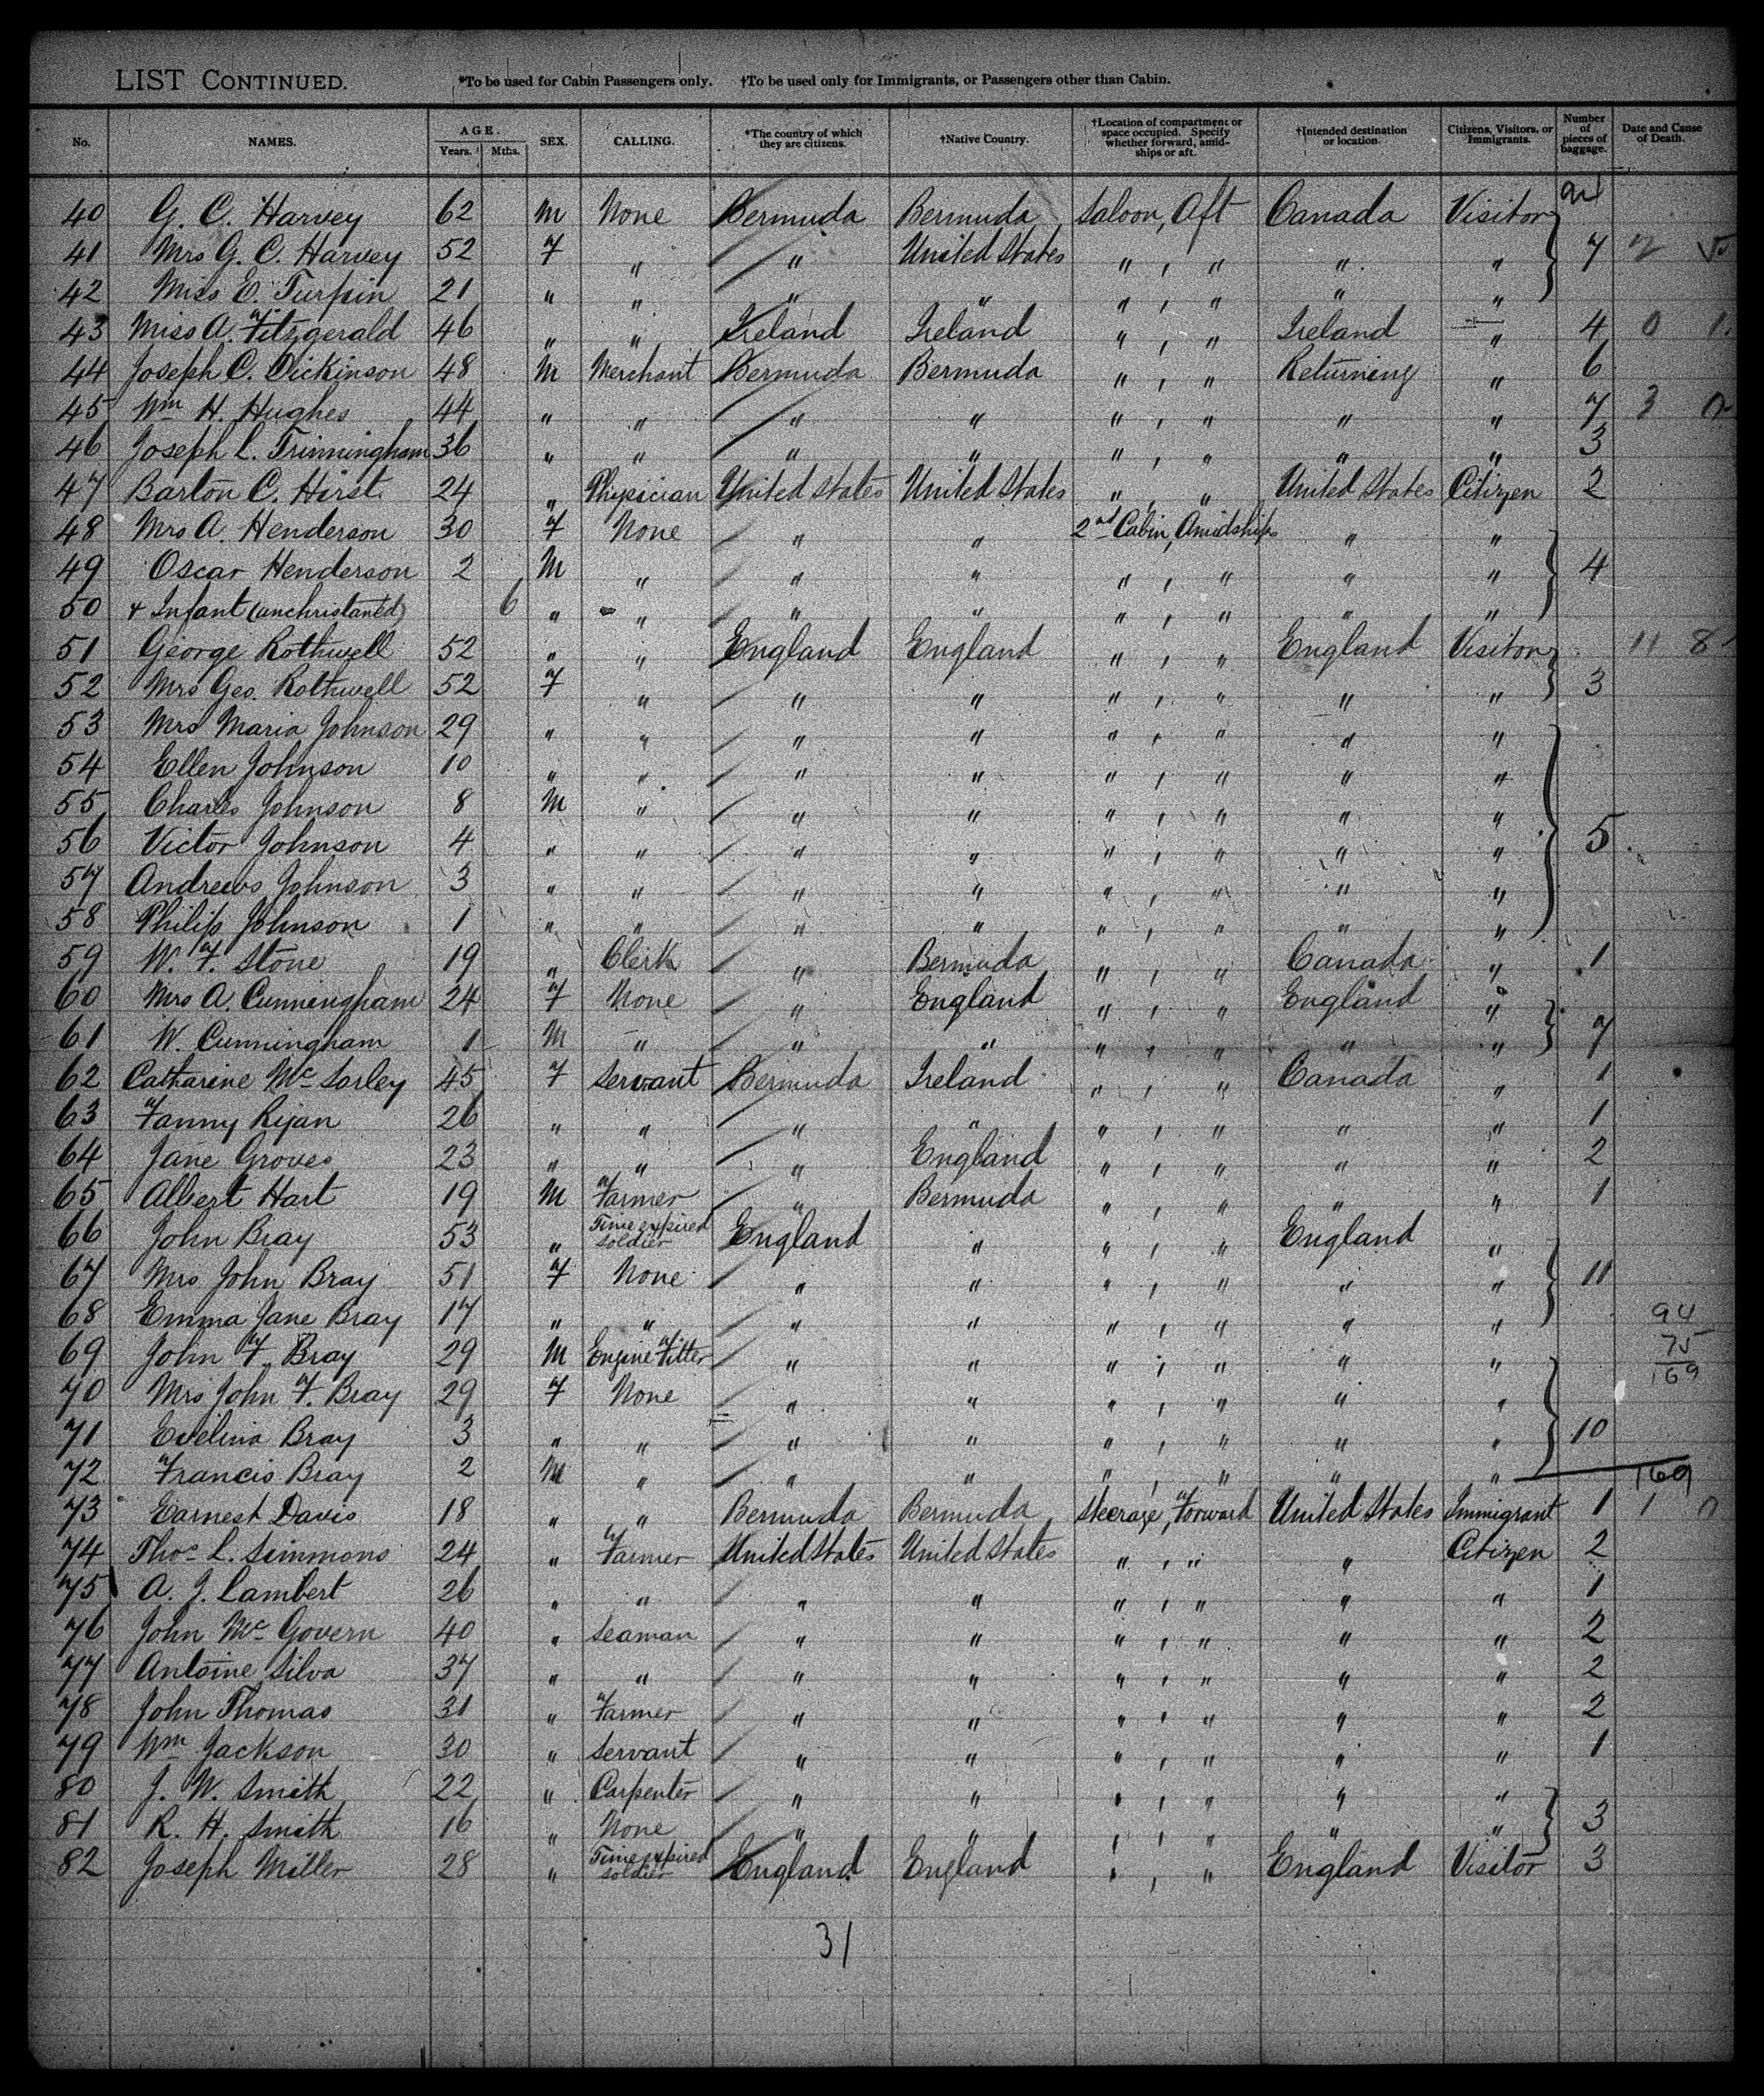 LIST CONTINUED. *To be used for Cabin Passengers only. †To be used only for Immigrants, or Passengers other than Cabin.
No. NAMES. AGE. Years. Mths. SEX. CALLING. *The country of which they are citizens. †Native Country. †Location of compartment or space occupied. Specify whether forward, amidships or aft. †Intended destination or location. Citizens, Visitors, or Immigrants. Number of pieces of baggage. Date and Cause of Death.
40 G. C. Harvey 62 M None Bermuda Bermuda Saloon, Aft Canada Visitor
41 Mrs G. C. Harvey 52 F " " United States " , " " " 7
42 Miss E. Turpin 21 " " " " " , " " "
43 Miss A. Fitzgerald 46 " " Ireland Ireland " , " Ireland " 4 0 1
44 Joseph C. Dickinson 48 M Merchant Bermuda Bermuda " , " Returning " 6
45 Wm H. Hughes 44 " " " " " , " " " 7 3 0
46 Joseph L. Trimmingham 36 " " " " " , " " " 3
47 Barton C. Hirst 24 " Physician United States United States " , " United States Citizen 2
48 Mrs A. Henderson 30 F None " " 2nd Cabin, Amidships " "
49 Oscar Henderson 2 M " " " " , " " " 4
50 + Infant (unchristaned) 6 " " " " " , " " "
51 George Rothwell 52 " " England England " , " England Visitor 11 8
52 Mrs Geo. Rothwell 52 F " " " " , " " " 3
53 Mrs Maria Johnson 29 " " " " " , " " "
54 Ellen Johnson 10 " " " " " , " " "
55 Charles Johnson 8 M " " " " , " " "
56 Victor Johnson 4 " " " " " , " " " 5
57 Andrews Johnson 3 " " " " " , " " "
58 Philip Johnson 1 " " " " " , " " "
59 W. F. Stone 19 " Clerk " Bermuda " , " Canada " 1
60 Mrs A. Cunningham 24 F None " England " , " England "
61 W. Cunningham 1 M " " " " , " " " 7
62 Catharine Mc Sorley 45 F Servant Bermuda Ireland " , " Canada " 1
63 Fanny Ryan 26 " " " " " , " " " 1
64 Jane Groves 23 " " " England " , " " " 2
65 Albert Hart 19 M Farmer " Bermuda " , " " " 1
66 John Bray 53 " Time expired soldier England " " , " England "
67 Mrs John Bray 51 F None " " " , " " " 11
68 Emma Jane Bray 17 " " " " " , " " " 94
69 John F. Bray 29 M Engine Fitter " " " , " " " 75
169
70 Mrs John F. Bray 29 F None " " " , " " "
71 Evelina Bray 3 " " " " " , " " " 10
72 Francis Bray 2 M " " " " , " " " 169
73 Earnest Davis 18 " " Bermuda Bermuda Steerage, Forward United States Immigrant 1 1 0
74 Thos. L. Simmons 24 " Farmer United States United States " , " " Citizen 2
75 A. J. Lambert 26 " " " " " , " " " 1
76 John Mc Govern 40 " Seaman " " " , " " " 2
77 Antoine Silva 37 " " " " " , " " " 2
78 John Thomas 31 " Farmer " " " , " " " 2
79 Wm Jackson 30 " Servant " " " , " " " 1
80 J. W. Smith 22 " Carpenter " " " , " " "
81 R. H. Smith 16 " None " " " , " " " 3
82 Joseph Miller 28 " Time expired soldier England England " , " England Visitor 3
31